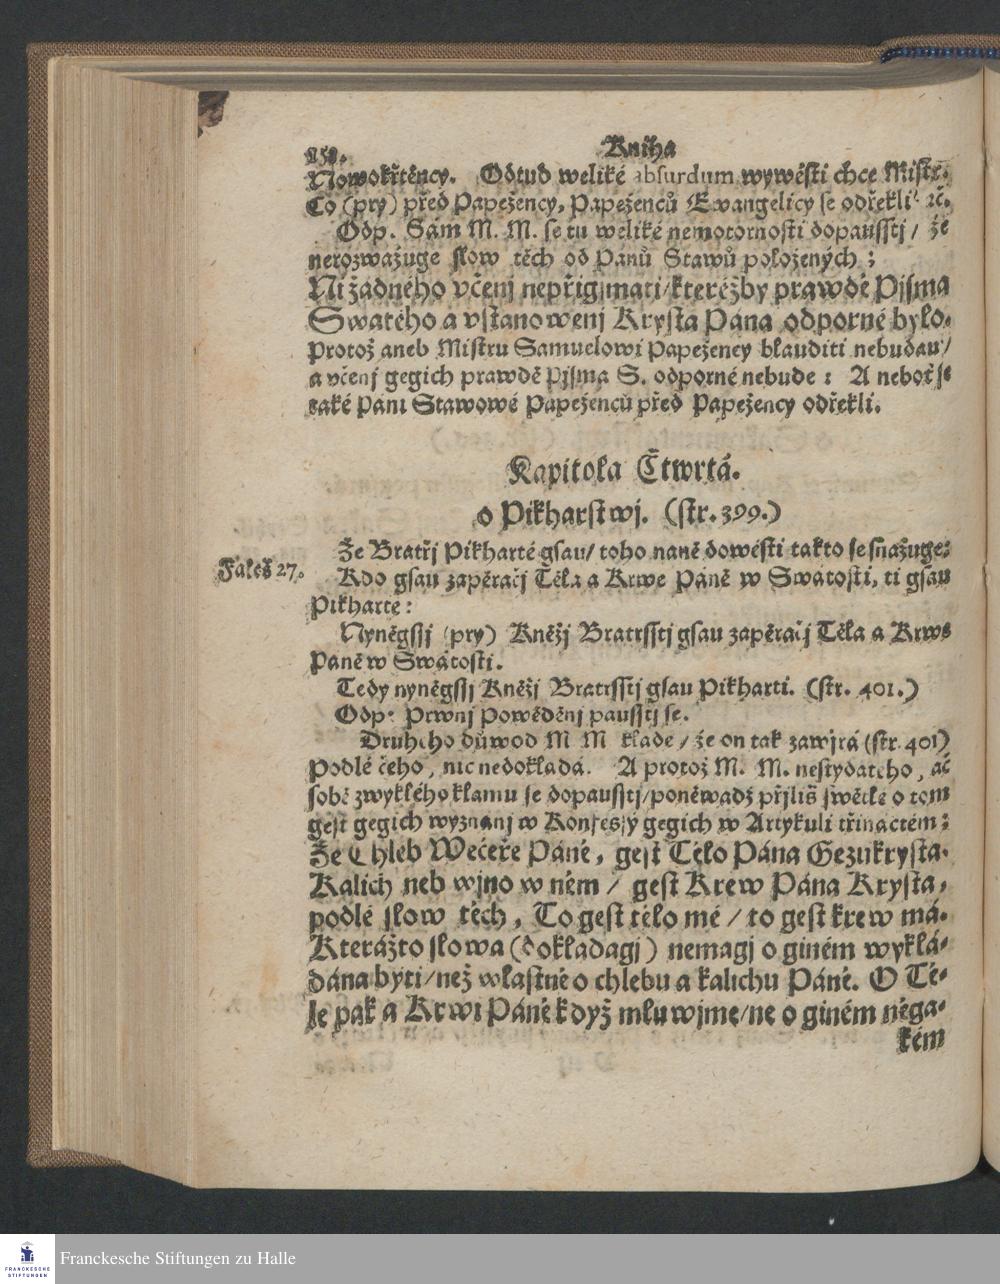 252. Kniha
Nowokřtěncy. Odtud weliké absurdum wywésti chce Mistr.
Co (pry) před Papežency, Papeženců Ewangelicy se odřekli. ꝛč.
Odp. Sám M. M. se tu weliké nemotornosti dopausstj / že
nerozwažuge slow těch od Panů Stawů položených;
Ni žádného včenj nepřigjmati / kteréžby prawdě Pjsma
Swatého a vstanowenj Krysta Pána odporné bylo.
Protož aneb Mistru Samuelowi Papežency blauditi nebudau /
a včenj gegich prawdě Pjsma S. odporné nebude: A neboť se
také Páni Stawowé Papeženců před Papežency odřekli.
Kapitola Čtwrtá.
o Pikharstwj. (str. 399.)
Že Bratřj Pikharté gsau / toho naně dowésti takto se snažuge:
Faleš 27. Kdo gsau zapěračj Těla a Krwe Páně w Swátosti, ti gsau
Pikharté:
Nyněgssj (pry) Kněžj Bratrsstj gsau zapěračj Těla a Krwe
Páně w Swátosti.
Tedy nyněgssj Kněžj Bratrsstj gsau Pikharti. (str. 401.)
Odp. Prwnj Powěděnj pausstj se.
Druhého důwod M M klade / že on tak zawjrá (str. 401)
Podlé čeho, nic nedokládá. A protož M. M. nestydatého, ač
sobě zwyklého klamu se dopausstj / poněwadž přjliš swětlé o tom
gest gegich wyznánj w Konfessy gegich w Artykuli třináctém;
Že Chléb Wečeře Páně, gest Tělo Pána Gezukrysta.
Kalich neb wjno w něm / gest Krew Pána Krysta,
podlé slow těch, To gest tělo mé / to gest krew má.
Kterážto slowa (dokládagj) nemagj o giném wyklá-
dána býti / než wlastně o chlebu a kalichu Páně. O Tě-
le pak a Krwi Páně když mluwjme / ne o giném něga-
kém
Franckesche Stiftungen zu Halle
FRANCKESCHE
STIFTUNGEN